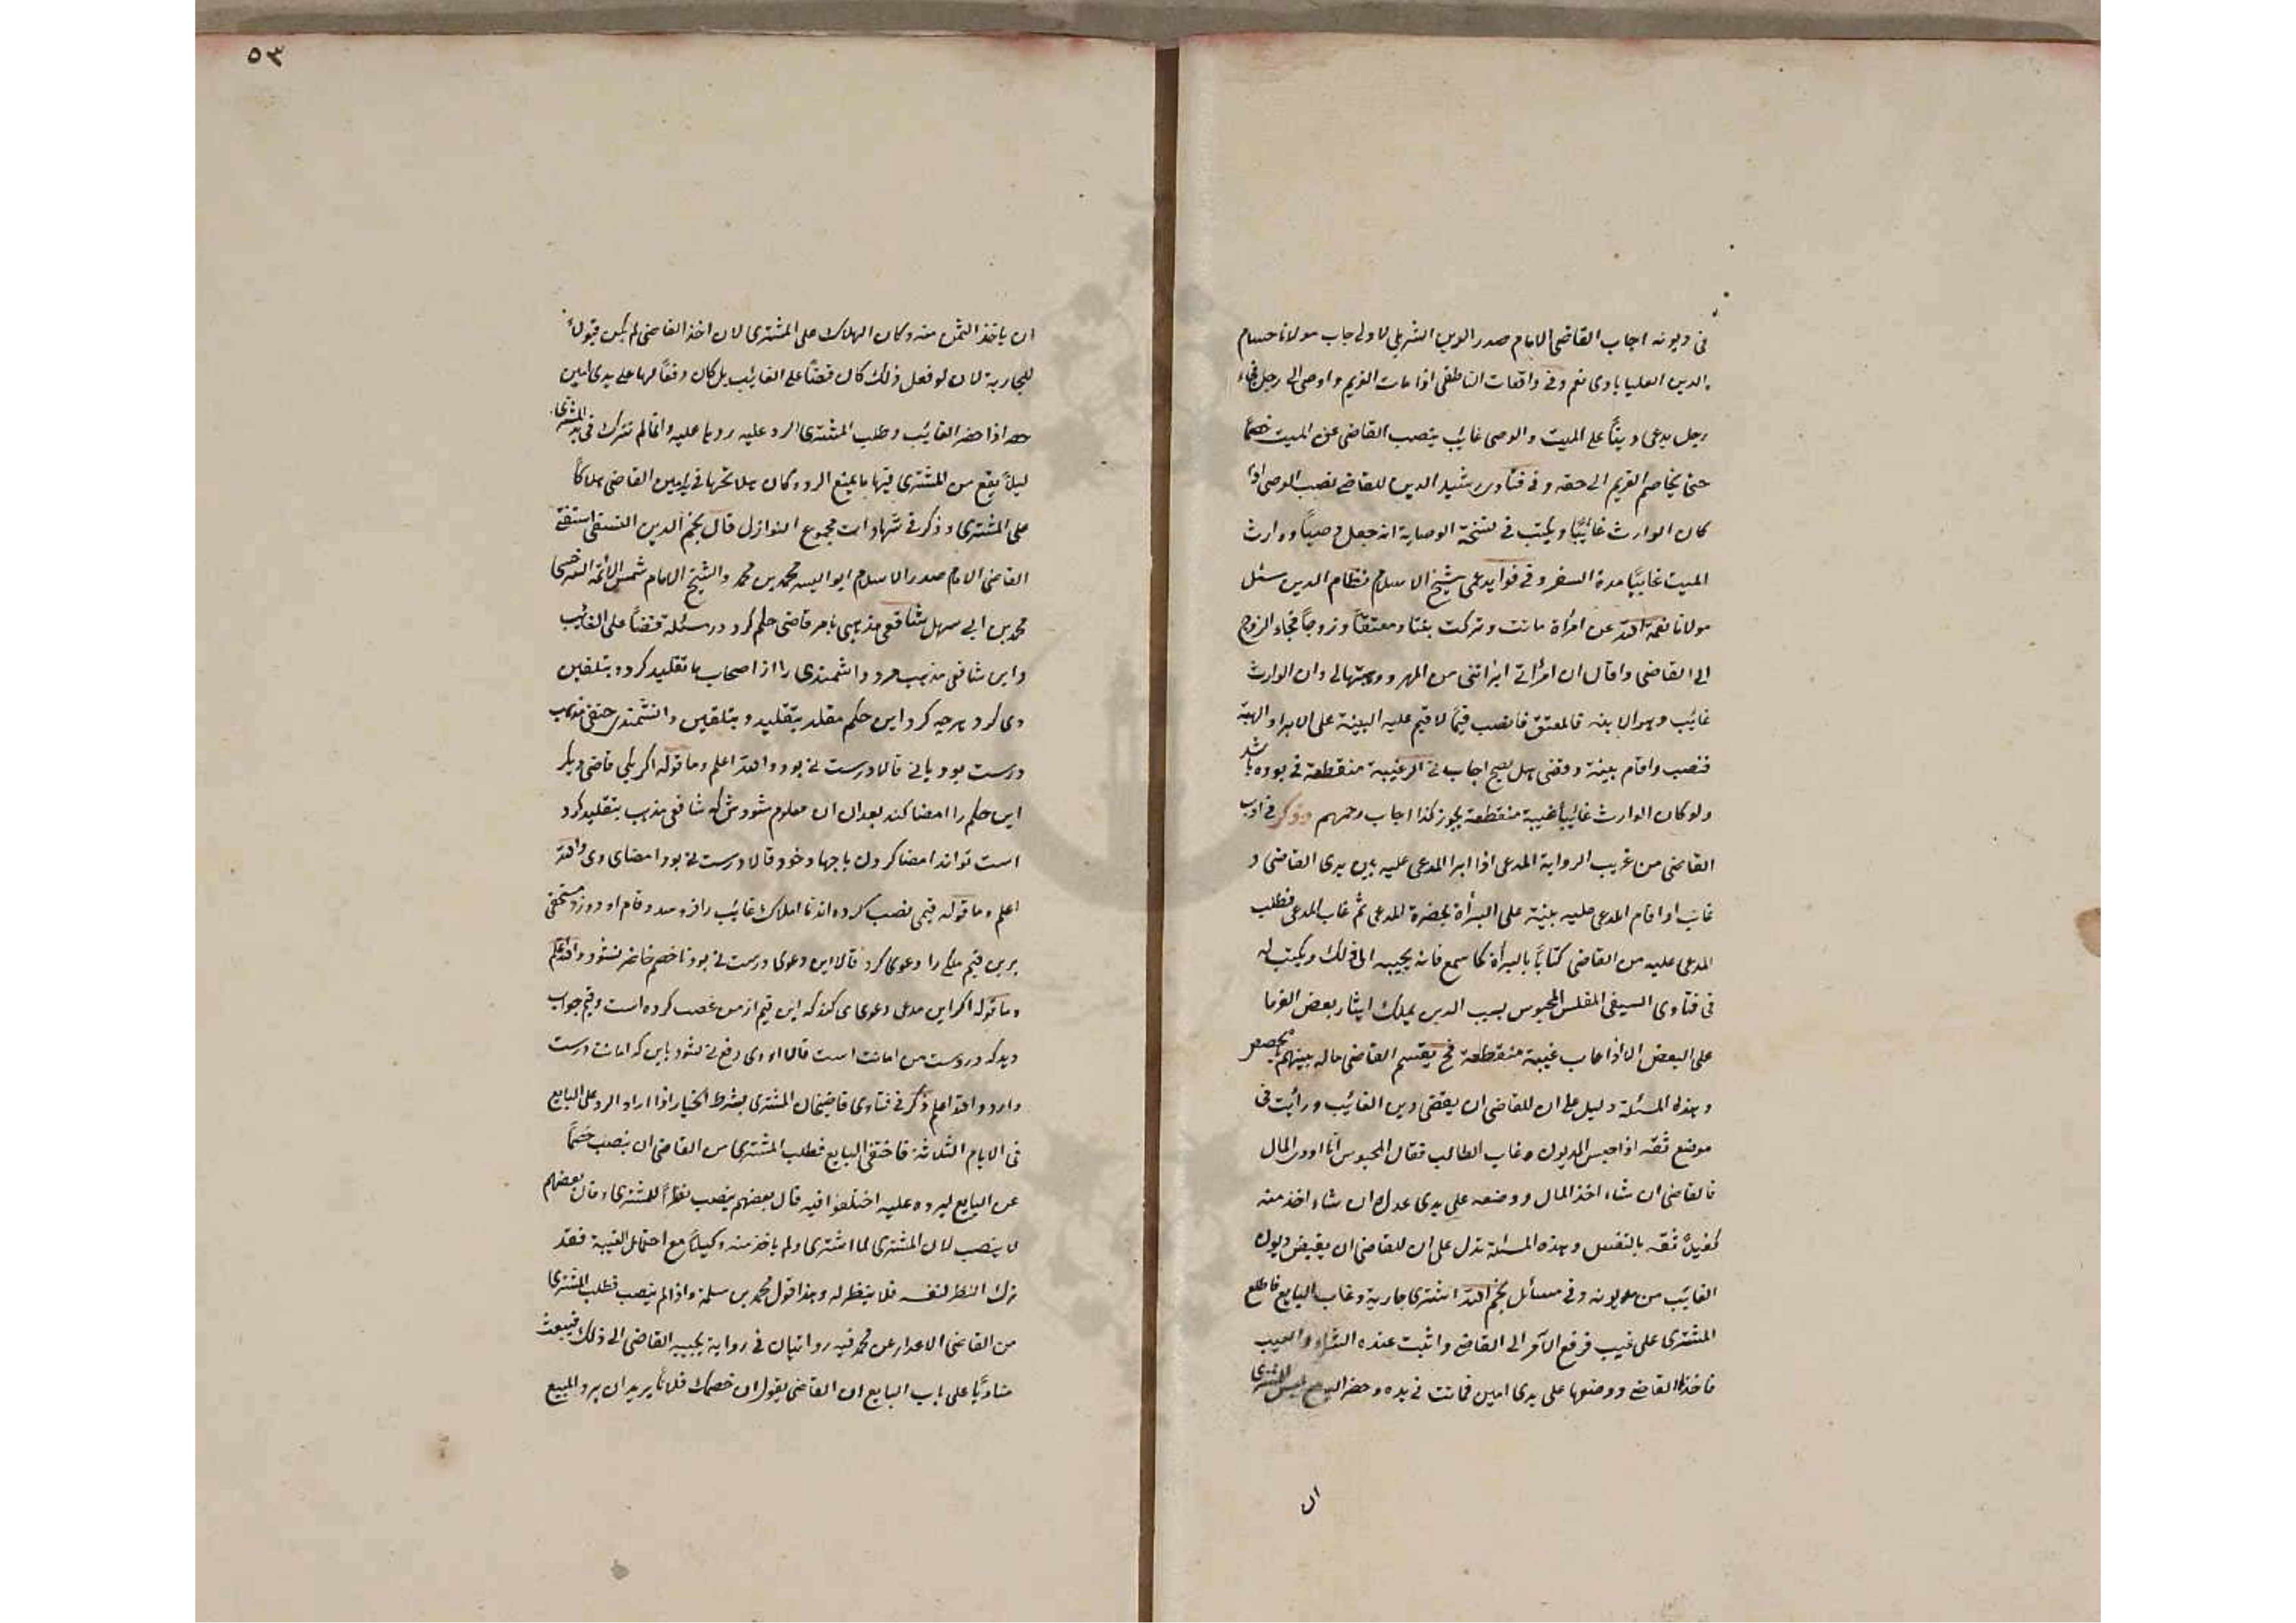 فى ديونه اجاب القاضى الامام صدر الدين الشربلى لا ولى جاب مولانا حسام
الدين العليابادى نعم وفى واقعات الناطفى اذا مات الغريم واوصى الى رجل فجاء
رجل يدعى دينًا على الميت والوصى غائب ينصب القاضى عن الميت خصمًا
حتى يخاصم الغريم الى حقه وفى فتاوى رشيد الدين للقاضى نصب الوصى اذا
كان الوارث غائبًا ويكتب فى نسخة الوصاية انه جعل وصيًا ووارث
الميت غائبًا مدة السفر وفى فوايد عمى شيخ الاسلام نظام الدين سئل
مولانا نعمة الله عن امرأة ماتت وتركت بنتا ومعتقًا وزوجًا فجاء الزوج
الى القاضى وقال ان امرأتى ابرأتنى من المهر ووهبتها لى وان الوارث
غائب وهو الابنه فالمعتق فانصب قيمًا لاقيم عليه البينة على الابراء والهبة
فنصب واقام بينة وقضى هل يصح اجاب نى اكر غيبة منقطعة نى بوده باشد
ولو كان الوارث غائبًا غيبة منقطعة يجوز كذا اجاب وغيرهم وذكر فى ادب
القاضى من غريب الرواية المدعى اذا ابرا المدعى عليه بين يدى القاضى و
غاب او اقام المدعى عليه بينة على البرأة بحضرة المدعى ثم غاب المدعى فطلب
المدعى عليه من القاضى كتابًا بالبرأة كما سمع فانه يجيبه الى ذلك ويكتب له
فى فتاوى السيفى المفلس المحبوس بسبب الدين يملك ايثار بعض الغرما
على البعض الا اذا غاب غيبة منقطعة فح يقسم القاضى ماله بينهم بالحصص
وهذه المسئلة دليل على ان للقاضى ان يقضى دين الغائب ورأيت فى
موضع ثقة اذا حبس المديون وغاب الطالب فقال المحبوس انا اودى المال
فالقاضى ان شاء اخذ المال ووضعه على يدى عدل وان شاء اخذ منه
كفيلًا ثقه بالنفس وهذه المسئلة تدل على ان للقاضى ان يقبض ديون
الغائب من مديونه وفى مسائل نجم الله اشترى جارية وغاب البايع فاطلع
المشترى على عيب فرفع الامر الى القاضى واثبت عنده الشراء والعيب
فاخذها القاضى ووضعها على يدى امين فماتت فى يده وحضر البايع ليس للمشترى
ان
٥٣
ان ياخذ الثمن منه وكان الهلاك على المشترى لان اخذ القاضى لم يكن قبولًا
للجارية لان لو فعل ذلك كان قضاءً على الغائب بل كان وقفًا لها على يدى امين
حتى اذا حضر الغائب وطلب المشترى الرد عليه ردها عليه وانما لم تترك فى يد المشترى
ليلا يقع من المشترى فيها ما يمنع الرد وكان هلاكها فى يد امين القاضى هلاكًا
على المشترى وذكر فى شهادات مجموع النوازل قال نجم الدين النسفى استفتى
القاضى الامام صدر الاسلام ابو اليسر محمد بن محمد والشيخ الامام شمس الائمة السرخسى
محمد بن ابى سهل شافعى مذهبى بامر قاضى حكم كرد در مسئلة قضاءً على الغائب
واين شافعى مذهب مرد دانشمندى را از اصحاب ما تقليد كرده بتلقين
وى كرد هرچه كرد اين حكم مقلد بتقليد وبتلقين دانشمند حنفى مذهب
درست بود يا نى قالا درست نى بود والله اعلم وما قوله اكر يكى قاضى ديكر
اين حكم را امضا كند بعد ان ان معلوم شودش كه شافعى مذهب بتقليد كرد
است تواند امضا كردن باجهاد خود قالا درست نى بود امضاى وى والله
اعلم وما قوله قيمى نصب كرده اند تا املاك غايب را فروسد وقام او دوز ومستحقى
برين قيم ملكى را دعوى كرد قالا اين دعوى درست نى بود تا خصم حاضر نشود والله اعلم
وما قوله اكر اين مدعى دعوى مى كند كه اين قيم از من غصب كرده است وقيم جواب
ديد كه در دست من امانت است قالا او وى دفع نى شود باين كه امانت درست
دارد والله اعلم ذكر فى فتاوى قاضيخان المشترى بشرط الخيار اذا اراد الرد على البايع
فى الايام الثلاثة فاختفى البايع فطلب المشترى من القاضى ان ينصب خصمًا
عن البايع ليرده عليه اختلفوا فيه قال بعضهم ينصب نظرًا للمشترى وقال بعضهم
لا ينصب لان المشترى لما اشترى ولم ياخذ منه وكيلًا مع احتمال الغيبة فقد
ترك النظر لنفسه فلا ينظر له وهذا قول محمد بن سلمة واذا لم ينصب فطلب المشترى
من القاضى الاعذار عن محمد فيه روايتان فى رواية يجيبه القاضى الى ذلك فيبعث
مناديًا على باب البايع ان القاضى يقول ان خصمك فلانًا يريد ان يرد المبيع